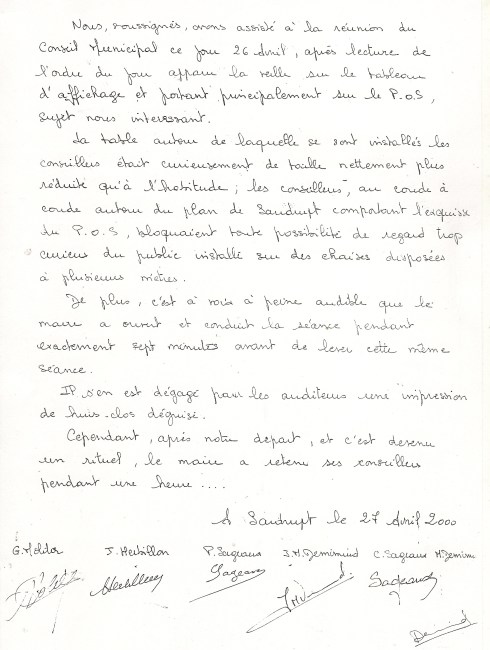 Nous, soussignés, avons assisté à la réunion du
Conseil Municipal ce jour 26 Avril, après lecture de
l'ordre du jour apparu la veille sur le tableau
d'affichage et portant principalement sur le P.O.S,
sujet nous interessant.
La table autour de laquelle se sont installés les
conseillers était curieusement de taille nettement plus
réduite qu'à l'habitude ; les conseillers, au coude à
coude autour du plan de Saudrupt comportant l'esquisse
du P.O.S, bloquaient toute possibilité de regard trop
curieux du public installé sur des chaises disposées
à plusieurs mètres.
De plus, c'est à voix à peine audible que le
maire a ouvert et conduit la séance pendant
exactement sept minutes avant de lever cette même
séance.
Il s'en est dégagé pour les auditeurs une impression
de huis-clos déguisé.
Cependant, après notre départ, et c'est devenu
un rituel, le maire a retenu ses conseillers
pendant une heure ....
A Saudrupt le 27 Avril 2000
J. Herbillon P. Sageaux C. Sageaux